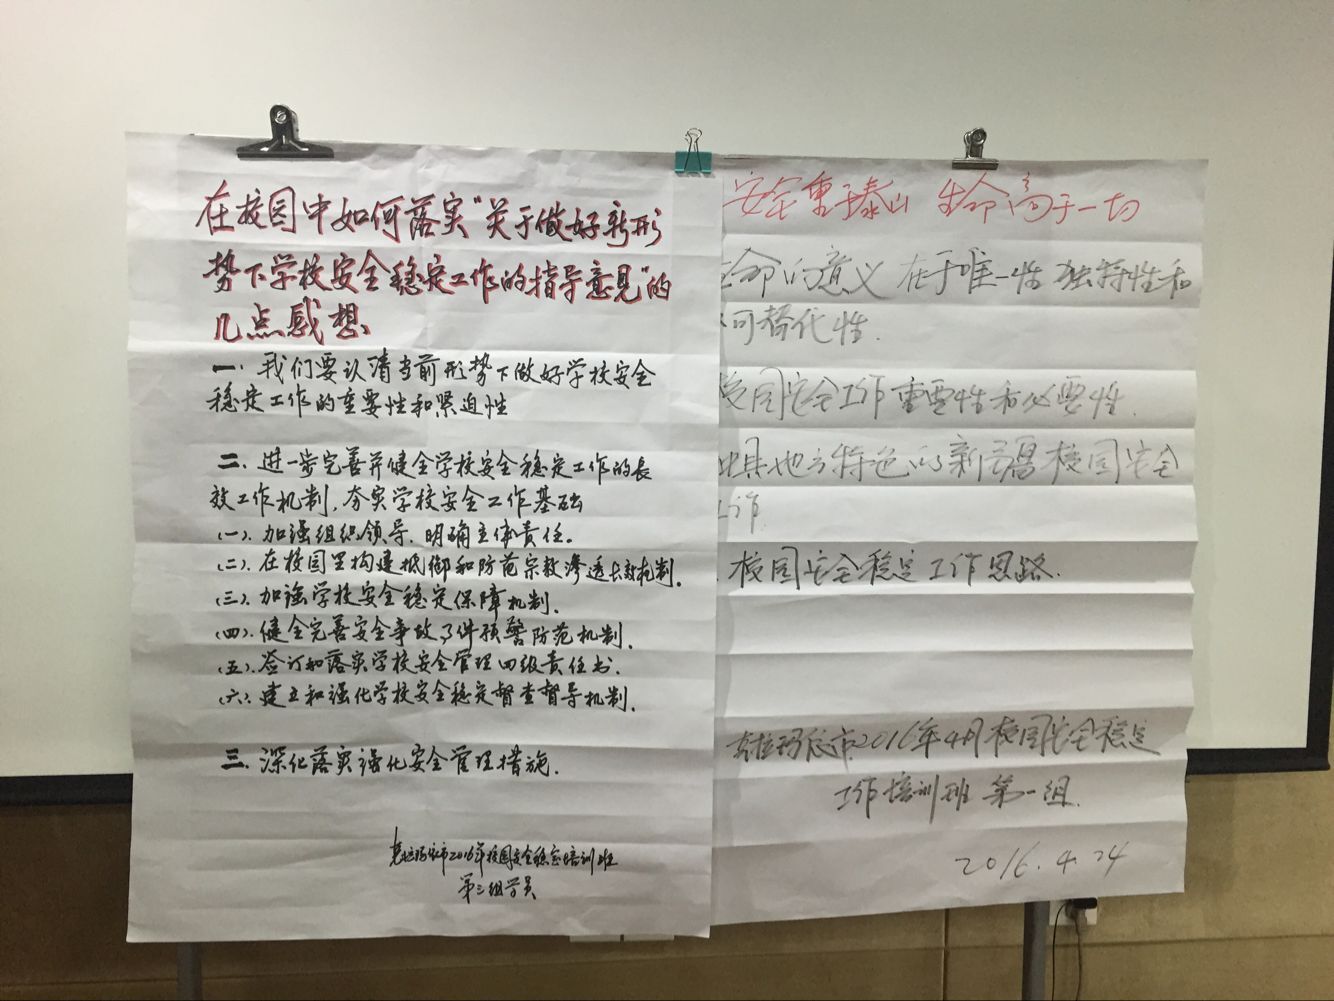 在校园中如何落实“关于做好新形
势下学校安全稳定工作的指导意见”的
几点感想
一.我们要认清当前形势下做好学校安全
稳定工作的重要性和紧迫性
二.进一步完善并健全学校安全稳定工作的长
效工作机制,夯实学校安全工作基础
(一).加强组织领导,明确主体责任。
(二).在校园里构建抵御和防范宗教渗透长效机制.
(三).加强学校安全稳定保障机制.
(四).健全完善安全事故事件预警防范机制.
(五).签订和落实学校安全管理四级责任书.
(六).建立和强化学校安全稳定督查督导机制.
三.深化落实强化安全管理措施.
克拉玛依市2016年校园安全稳定培训班
第三组学员
安全重于泰山 生命高于一切
命的意义 在于唯一性 独特性和
可替代性.
校园安全工作重要性和必要性.
具地方特色的新疆校园安全
工作
.校园安全稳定工作思路.
克拉玛依市2016年4月校园安全稳定
工作培训班 第一组
2016.4.24